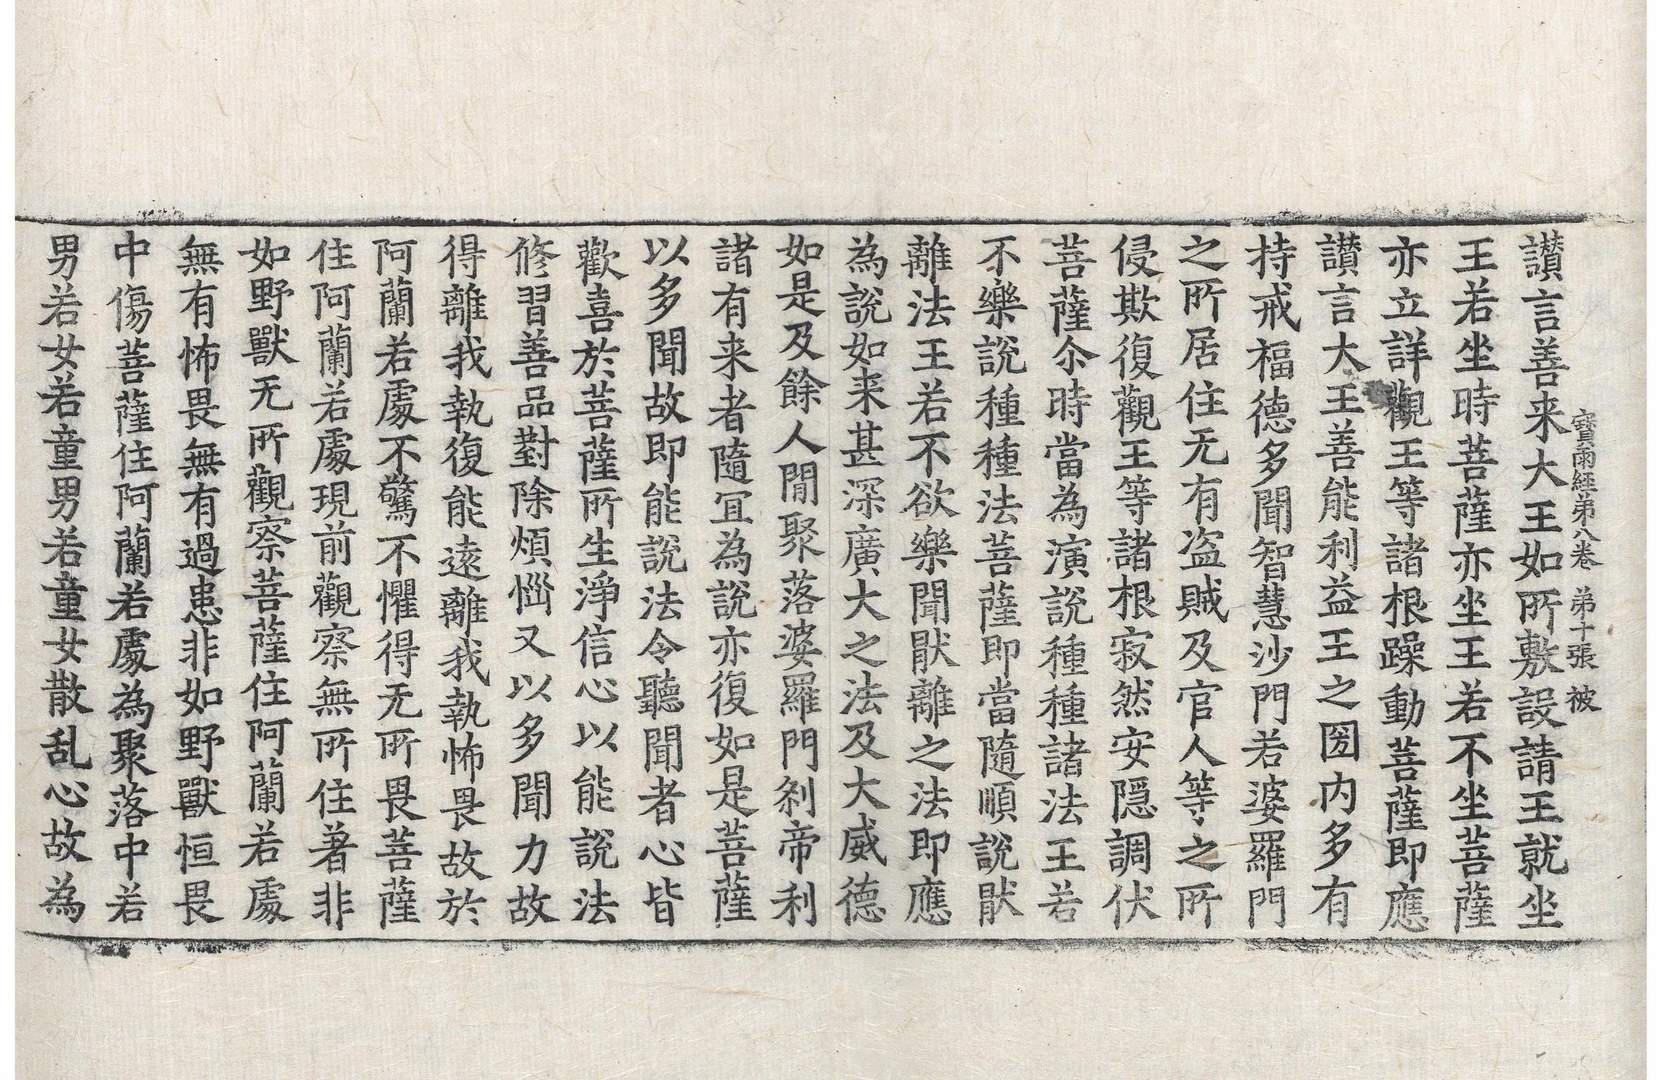 寶雨經第八卷　第十張　被
讃言善来大王如所敷設請王就坐
王若坐時菩薩亦坐王若不坐菩薩
亦立詳觀王等諸根躁動菩薩即應
讃言大王善能利益王之圀内多有
持戒福德多聞智慧沙門若婆羅門
之所居住无有盗賊及官人等之所
侵欺復觀王等諸根寂然安隠調伏
菩薩尒時當為演說種種諸法王若
不樂說種種法菩薩即當隨順說猒
離法王若不欲樂聞猒離之法即應
為說如来甚深廣大之法及大威德
如是及餘人間聚落婆羅門刹帝利
諸有来者隨冝為說亦復如是菩薩
以多聞故即能說法令聽聞者心皆
歡喜於菩薩所生淨信心以能說法
修習善品對除煩惱又以多聞力故
得離我執復能遠離我執怖畏故於
阿蘭若處不驚不懼得无所畏菩薩
住阿蘭若處現前觀察無所住著非
如野獸无所觀察菩薩住阿蘭若處
無有怖畏無有過患非如野獸恒畏
中傷菩薩住阿蘭若處為聚落中若
男若女若童男若童女散乱心故為